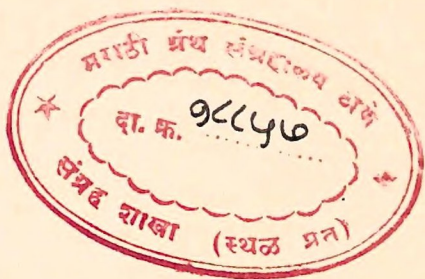 मराठी ग्रंथ संग्रहालय ठाणे
दा. क्र. १८८५७
संग्रह शाखा (स्थळ प्रत)